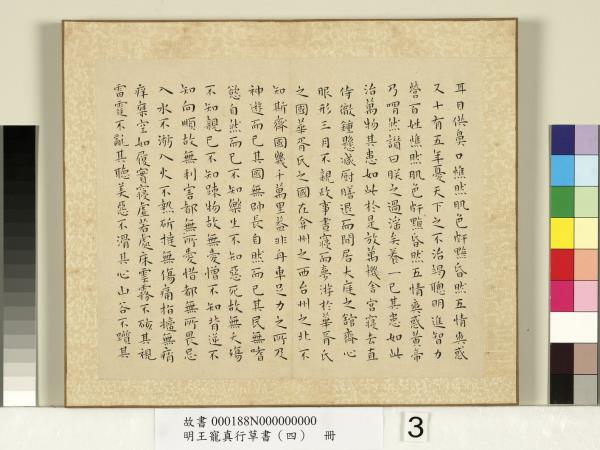 耳目供鼻口憔然肌色皯黣昏然五情爽惑
又十有五年憂天下之不治竭聰明進智力
營百姓憔然肌色皯黣昏然五情爽惑黃帝
乃喟然讚曰朕之過淫矣養一己其患如此
治萬物其患如此於是放萬機舍宮寢去直
侍徹鍾懸減廚膳退而閒居大庭之館齋心
服形三月不親政事晝寢而夢游於華胥氏
之國華胥氏之國在弇州之西台州之北不
知斯齊國幾千萬里蓋非舟車足力之所及
神遊而已其國無帥長自然而已其民無嗜
慾自然而已不知樂生不知惡死故無夭殤
不知親己不知踈物故無愛憎不知背逆不
知向順故無利害都無所愛惜都無所畏忌
入水不溺入火不熱斫撻無傷痛指擿無痟
癢乘空如履實寢虛若處床雲霧不硋其視
雷霆不亂其聽美惡不滑其心山谷不躓其
故書 000188N000000000
明王寵真行草書(四) 冊
3